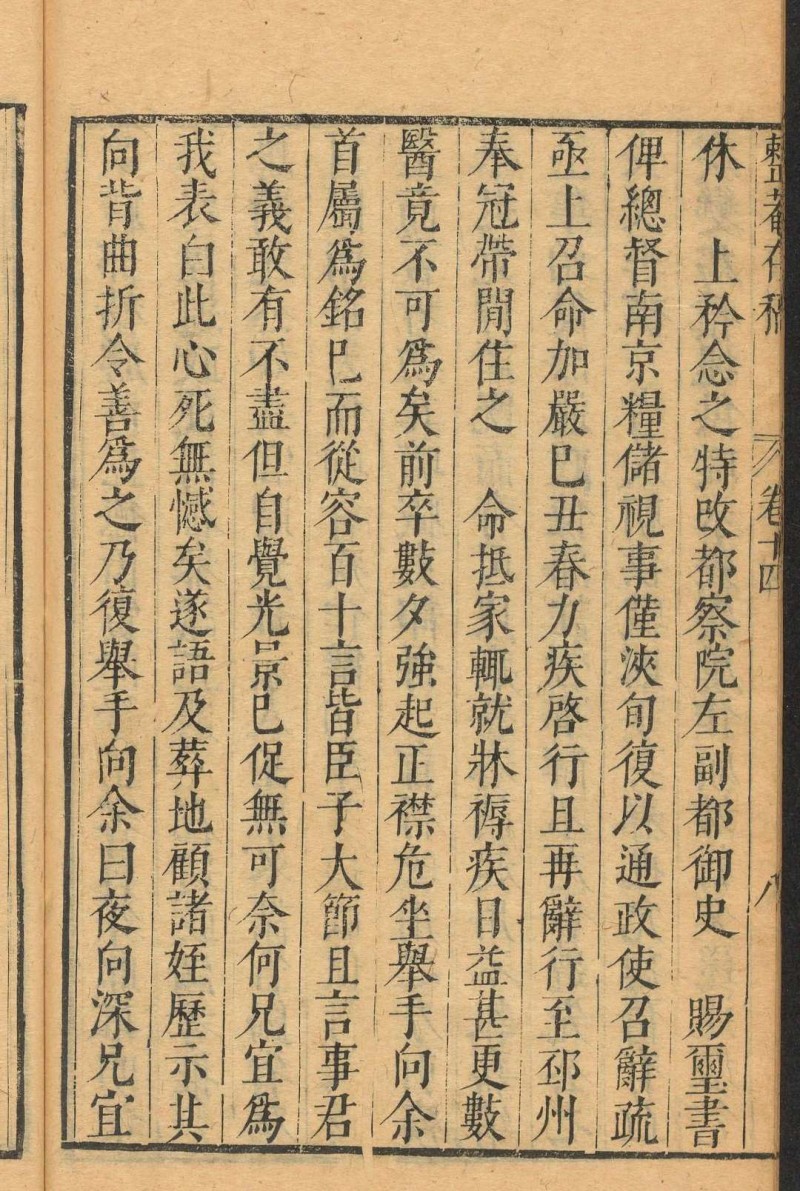 整菴存稿 卷十四 八
休 上矜念之特改都察院左副都御史 賜璽書
俾總督南京糧儲視事僅浹旬復以通政使召辭疏
亟上召命加嚴巳丑春力疾啓行且再辭行至邳州
奉冠帶閒住之 命抵家輒就牀褥疾日益甚更數
醫竟不可爲矣前卒數夕強起正襟危坐舉手向余
首屬爲銘巳而從容百十言皆臣子大節且言事君
之義敢有不盡但自覺光景巳促無可奈何兄宜爲
我表白此心死無憾矣遂語及葬地顧諸姪歷示其
向背曲折令善爲之乃復舉手向余曰夜向深兄宜